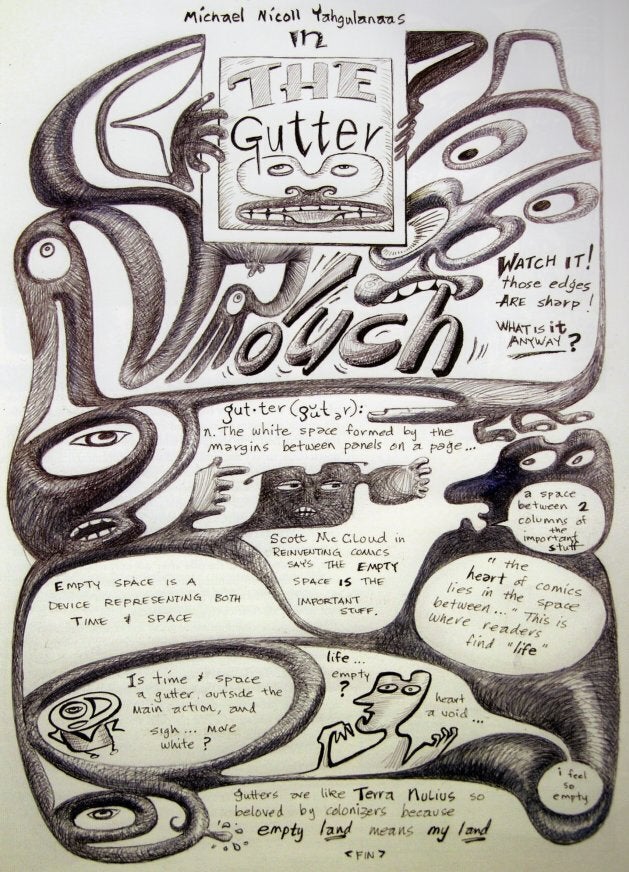 Michael Nicoll Yahgulanaas
in
THE
Gutter
Ouch
WATCH IT!
those edges
ARE sharp!
WHAT IS it
ANYWAY?
gut·ter (gŭt ər):
n. The white space formed by the
margins between panels on a page...
a space
between 2
columns of
the
important
stuff
Scott McCloud in
REINVENTING COMICS
SAYS THE EMPTY
SPACE IS THE
IMPORTANT
STUFF.
EMPTY SPACE IS A
DEVICE REPRESENTING BOTH
TIME & SPACE
"the
heart of comics
lies in the space
between..." This is
where readers
find "life"
Is time & space
a gutter, outside the
main action, and
sigh... more
white?
life...
empty
?
heart
a void...
i feel
so
empty
gutters are like Terra Nullius so
beloved by colonizers because
empty land means my land
<FIN>